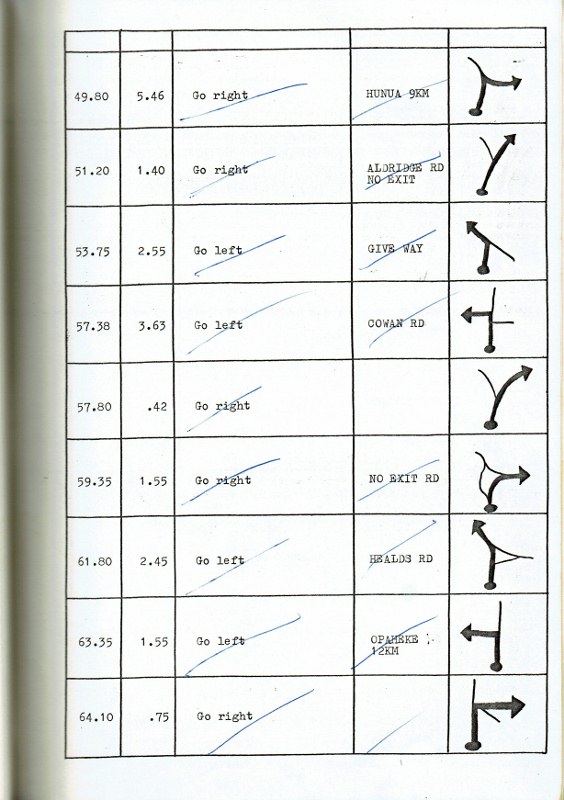 49.80 5.46 Go right HUNUA 9KM
51.20 1.40 Go right ALDRIDGE RD
NO EXIT
53.75 2.55 Go left GIVE WAY
57.38 3.63 Go left COWAN RD
57.80 .42 Go right
59.35 1.55 Go right NO EXIT RD
61.80 2.45 Go left HEALDS RD
63.35 1.55 Go left OPAHEKE
12KM
64.10 .75 Go right